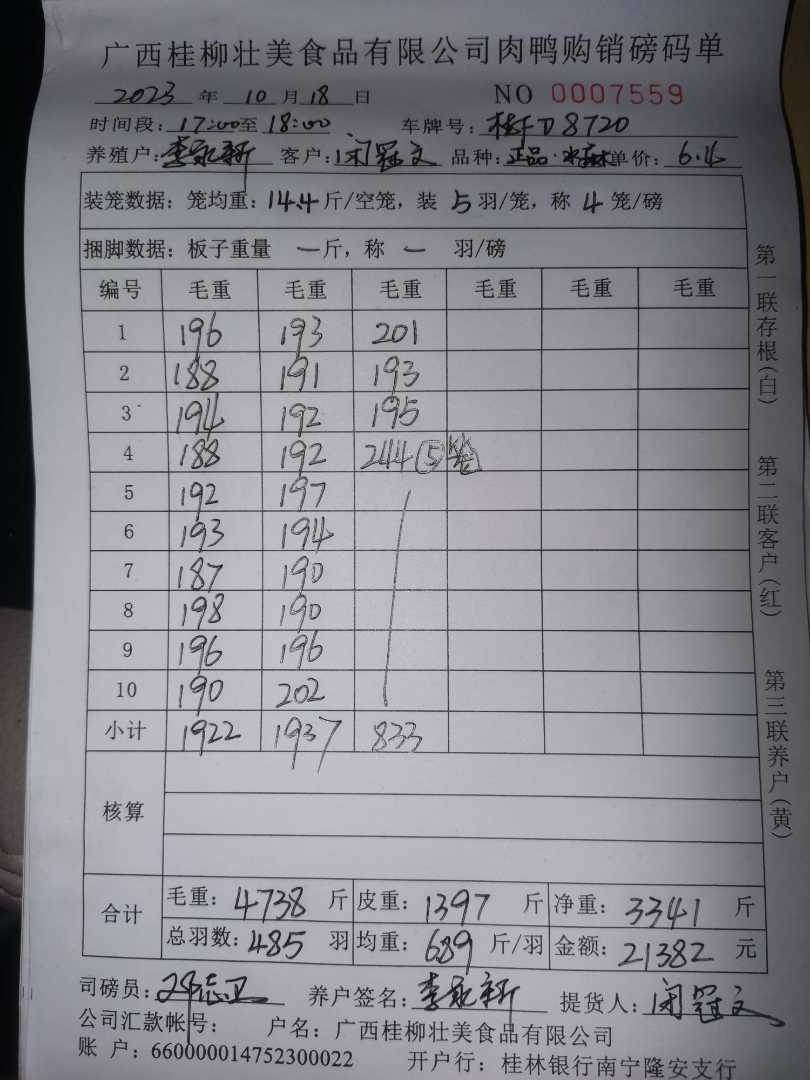 广西桂柳壮美食品有限公司肉鸭购销磅码单
2023 年 10 月 18 日 NO 0007559
时间段: 17:00至 18:00 车牌号: 桂FD8720
养殖户: 李永新 客户: 冠文 品种: 正品· 单价: 6.4
装笼数据: 笼均重: 14.4 斤/空笼, 装 5 羽/笼, 称 4 笼/磅
捆脚数据: 板子重量 一 斤, 称 一 羽/磅
编号 毛重 毛重 毛重 毛重 毛重 毛重
1 196 193 201
2 188 191 193
3 194 192 195
4 188 192 244 ⑤笼
5 192 197
6 193 194
7 187 190
8 198 190
9 196 196
10 190 202
小计 1922 1937 833
核算
合计
毛重: 4738 斤 皮重: 1397 斤 净重: 3341 斤
总羽数: 485 羽 均重: 6.89 斤/羽 金额: 21382 元
司磅员: 志卫 养户签名: 李永新 提货人: 冠文
公司汇款帐号: 户名: 广西桂柳壮美食品有限公司
账 户: 660000014752300022 开户行: 桂林银行南宁隆安支行
第一联存根(白)
第二联客户(红)
第三联养户(黄)